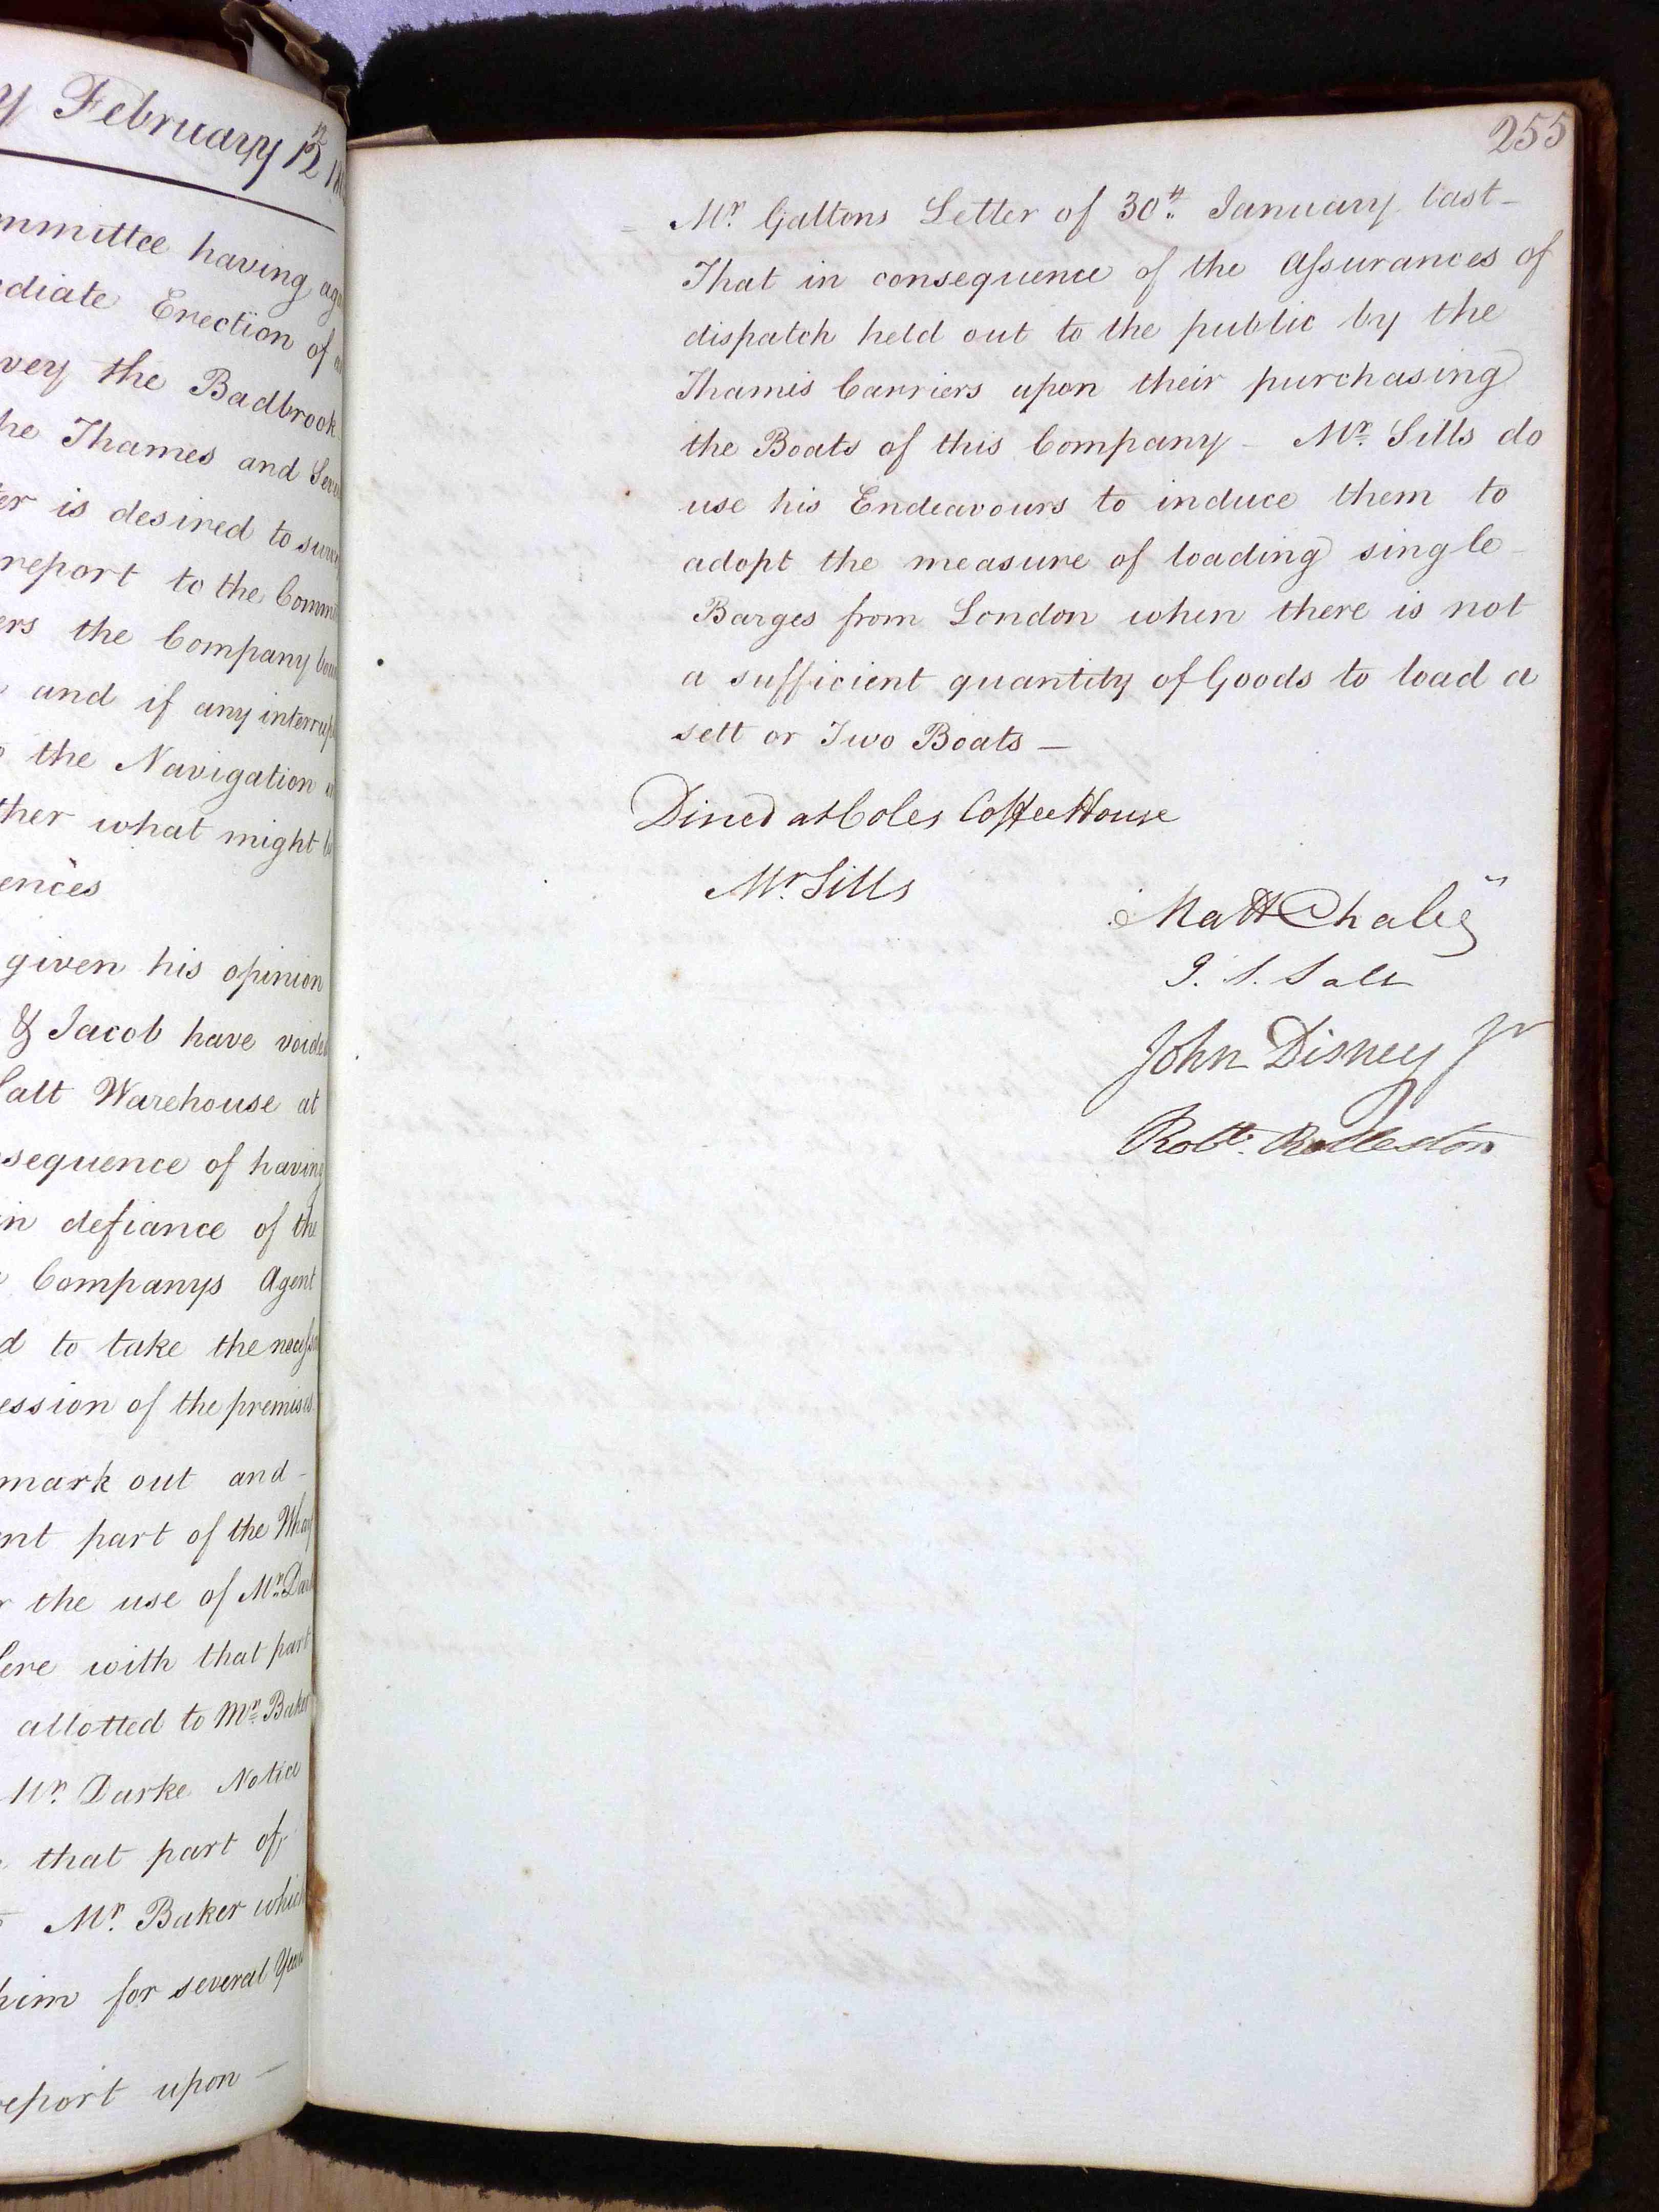 y February 12
mmittee having
ediate Erection of
vey the Badbrook
he Thames and
er is desired to
report to the
ers the Company
and if any
the Navigation
ther what might
ences
given his opinion
& Jacob have
Salt Warehouse at
sequence of having
in defiance of the
Companys Agent
d to take the
ession of the premises
mark out and -
nt part of the
r the use of Mr.
fere with that part
allotted to Mr. Baker
Mr. Darke Notice
that part of
Mr. Baker which
him for several
report upon -
255
Mr. Galtons Letter of 30th. January last -
That in consequence of the Assurances of
dispatch held out to the public by the
Thamis Carriers upon their purchasing
the Boats of this Company - Mr. Sills do
use his Endeavours to induce them to
adopt the measure of loading single -
Barges from London when there is not
a sufficient quantity of Goods to load a
sett or Two Boats -
Dined at Coles Coffee House
Mr Sills
Matt
J. S. Salt
John Disney Jr
Robt. Rolleston